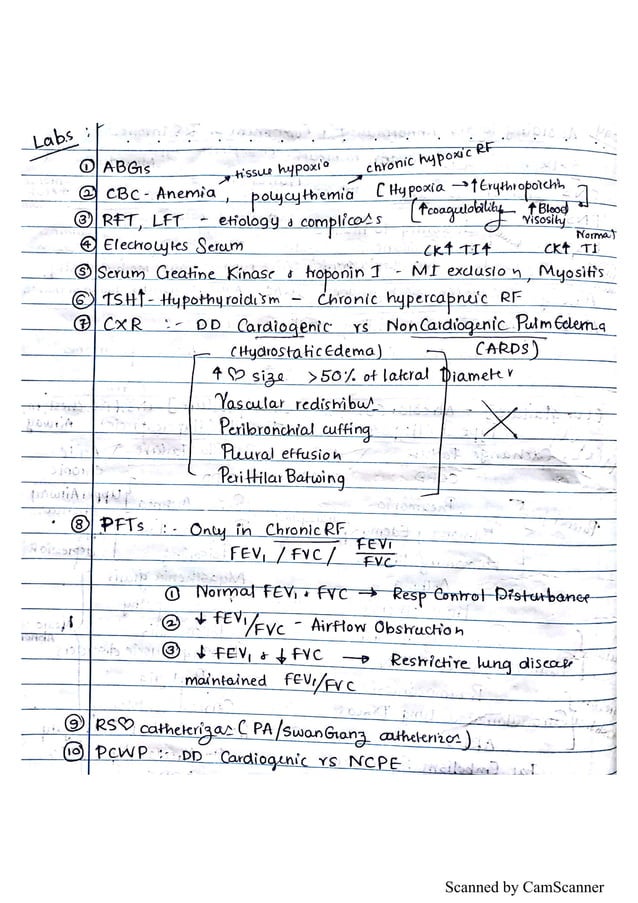 Labs :
① ABGs → tissue hypoxia → chronic hypoxic RF
② CBC - Anemia, polycythemia (Hypoxia → ↑Erythropoietin
③ RFT, LFT - etiology & complicaos [↑coagulobility ↑Blood viscosity
④ Electrolytes Serum CK↑ TI↑ CK↑, Normal TI
⑤ Serum Creatine Kinase & troponin I - MI exclusion, Myositis
⑥ TSH↑ - Hypothyroidism - Chronic hypercapneic RF
⑦ CXR :- DD Cardiogenic vs NonCardiogenic Pulm Edema
(Hydrostatic Edema) (ARDS)
↑ ♡ size >50% of lateral Diameter
Vascular redistribu
Peribronchial cuffing
Pleural effusion
PeriHilar Batwing
⑧ PFTs :- Only in Chronic RF
FEV1 / FVC / FEV1/FVC
① Normal FEV1 & FVC → Resp Control Disturbance
② ↓ FEV1/FVC - Airflow Obstruction
③ ↓ FEV1 & ↓ FVC → Restrictive lung disease
maintained FEV1/FVC
⑨ RS♡ catheterizao (PA/SwanGanz catheterizao)
⑩ PCWP :- DD Cardiogenic vs NCPE
Scanned by CamScanner